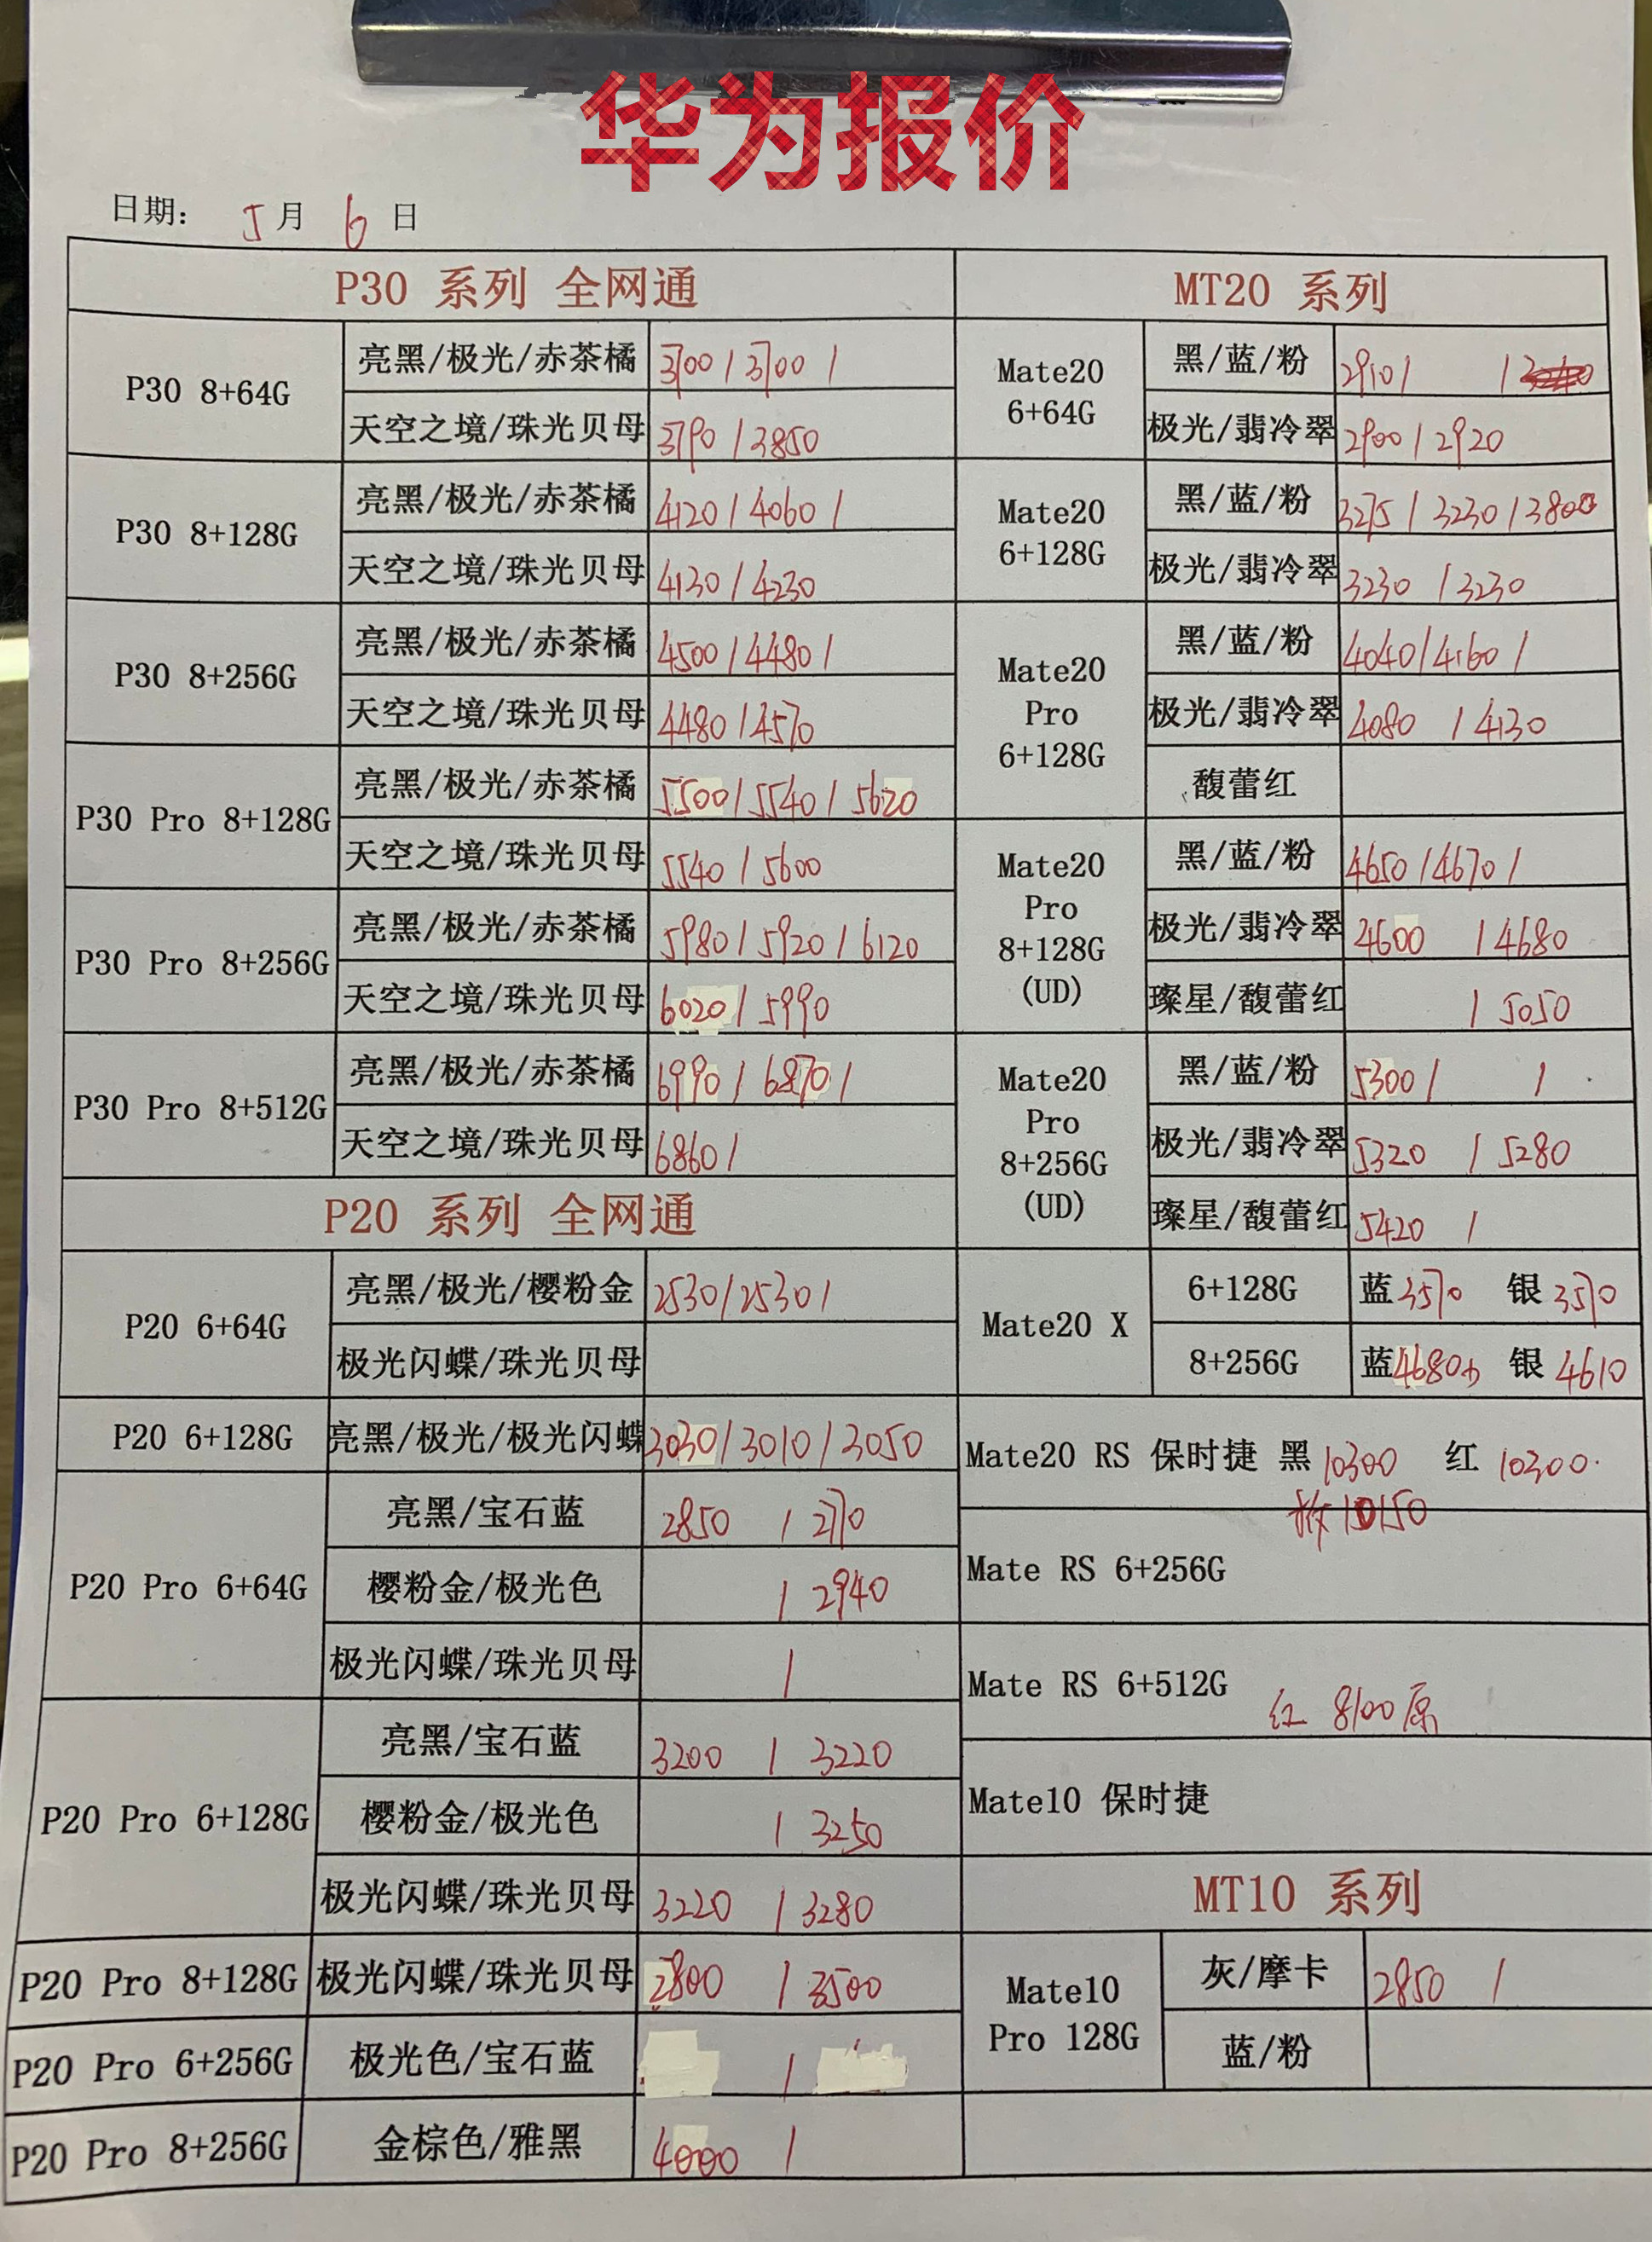 华为报价
日期： 5月 6日
P30 系列 全网通
P30 8+64G
亮黑/极光/赤茶橘 3700 / 3700 /
天空之境/珠光贝母 3790 / 3850
P30 8+128G
亮黑/极光/赤茶橘 4120 / 4060 /
天空之境/珠光贝母 4130 / 4230
P30 8+256G
亮黑/极光/赤茶橘 4500 / 4480 /
天空之境/珠光贝母 4480 / 4570
P30 Pro 8+128G
亮黑/极光/赤茶橘 5500 / 5540 / 5620
天空之境/珠光贝母 5540 / 5600
P30 Pro 8+256G
亮黑/极光/赤茶橘 5980 / 5920 / 6120
天空之境/珠光贝母 6020 / 5990
P30 Pro 8+512G
亮黑/极光/赤茶橘 6990 / 6870 /
天空之境/珠光贝母 6860 /
P20 系列 全网通
P20 6+64G
亮黑/极光/樱粉金 2530 / 2530 /
极光闪蝶/珠光贝母
P20 6+128G
亮黑/极光/极光闪蝶 3030 / 3010 / 3050
P20 Pro 6+64G
亮黑/宝石蓝 2850 /
樱粉金/极光色 / 2940
极光闪蝶/珠光贝母 /
P20 Pro 6+128G
亮黑/宝石蓝 3200 / 3220
樱粉金/极光色 / 3250
极光闪蝶/珠光贝母 3220 / 3280
P20 Pro 8+128G
极光闪蝶/珠光贝母 2800 / 3500
P20 Pro 6+256G
极光色/宝石蓝 /
P20 Pro 8+256G
金棕色/雅黑 4000 /
MT20 系列
Mate20
6+64G
黑/蓝/粉 2910 / /
极光/翡冷翠 2900 / 2920
Mate20
6+128G
黑/蓝/粉 3275 / 3230 / 3800
极光/翡冷翠 3230 / 3230
Mate20
Pro
6+128G
黑/蓝/粉 4040 / 4160 /
极光/翡冷翠 4080 / 4130
馥蕾红
Mate20
Pro
8+128G
(UD)
黑/蓝/粉 4650 / 4670 /
极光/翡冷翠 4600 / 4680
璨星/馥蕾红 / 5050
Mate20
Pro
8+256G
(UD)
黑/蓝/粉 5300 / /
极光/翡冷翠 5320 / 5280
璨星/馥蕾红 5420 /
Mate20 X
6+128G 蓝 3570 银 3570
8+256G 蓝 4680 银 4610
Mate20 RS 保时捷 黑 10300 红 10300
拆 10150
Mate RS 6+256G
Mate RS 6+512G
红 8100 原
Mate10 保时捷
MT10 系列
Mate10
Pro 128G
灰/摩卡 2850 /
蓝/粉